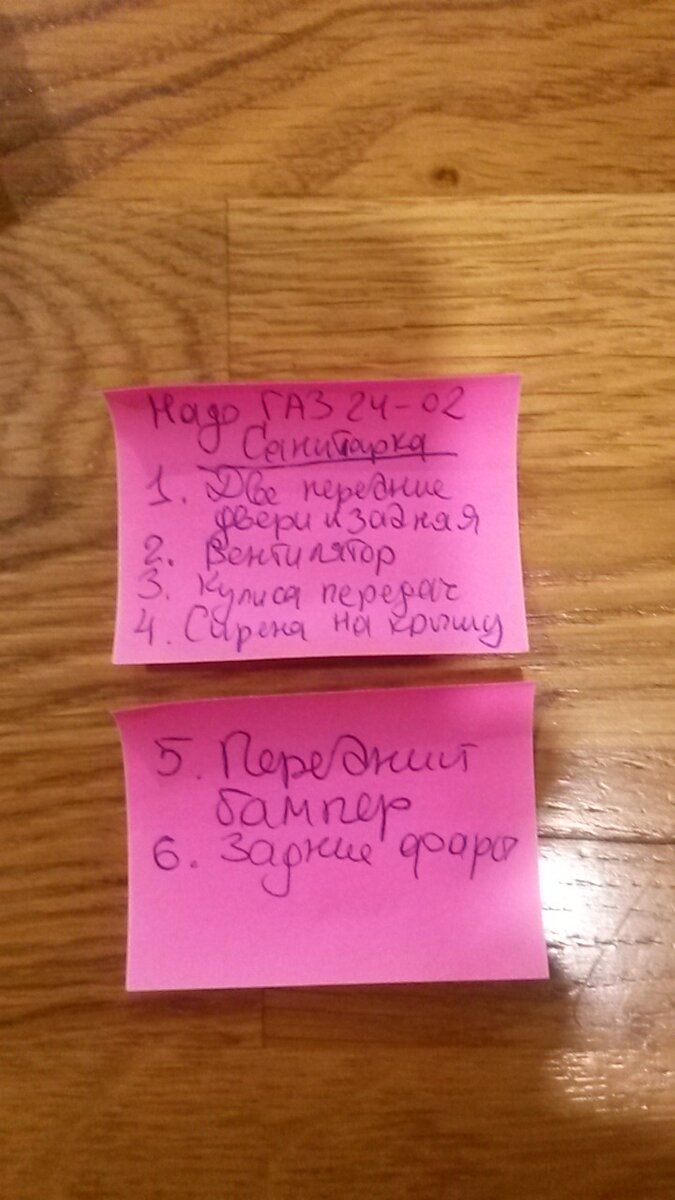 Надо ГАЗ 24-02
Санитарка
1. Две передние
двери и задняя
2. Вентилятор
3. Кулиса передач
4. Сирена на крышу
5. Передний
бампер
6. Задние фары